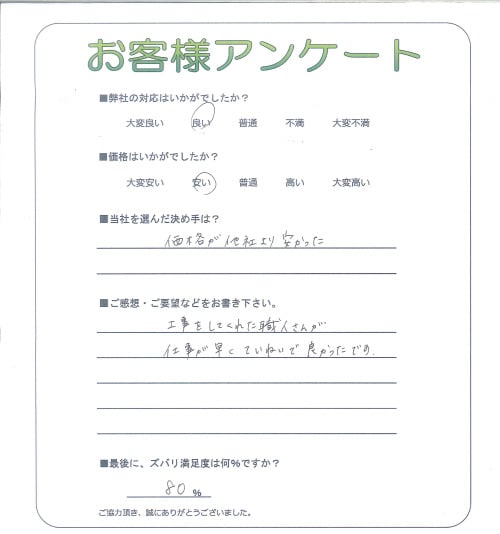 お客様アンケート
■弊社の対応はいかがでしたか？
大変良い 良い 普通 不満 大変不満
■価格はいかがでしたか？
大変安い 安い 普通 高い 大変高い
■当社を選んだ決め手は？
価格が他社より安かった
■ご感想・ご要望などをお書き下さい。
工事をしてくれた職人さんが
仕事が早くていねいで良かったです.
■最後に、ズバリ満足度は何％ですか？
80 %
ご協力頂き、誠にありがとうございました。